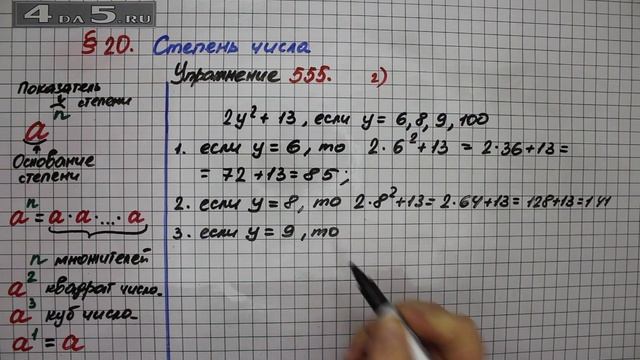 4DA5.RU
§ 20. Степень числа
Упражнение 555. г)
Показатель
степени
aⁿ
Основание
степени
aⁿ = a·a·...·a
n множителей
a² квадрат числа.
a³ куб числа.
a¹ = a
2y² + 13, если y = 6, 8, 9, 100
1. если y = 6, то 2·6² + 13 = 2·36 + 13 =
= 72 + 13 = 85;
2. если y = 8, то 2·8² + 13 = 2·64 + 13 = 128 + 13 = 141
3. если y = 9, то